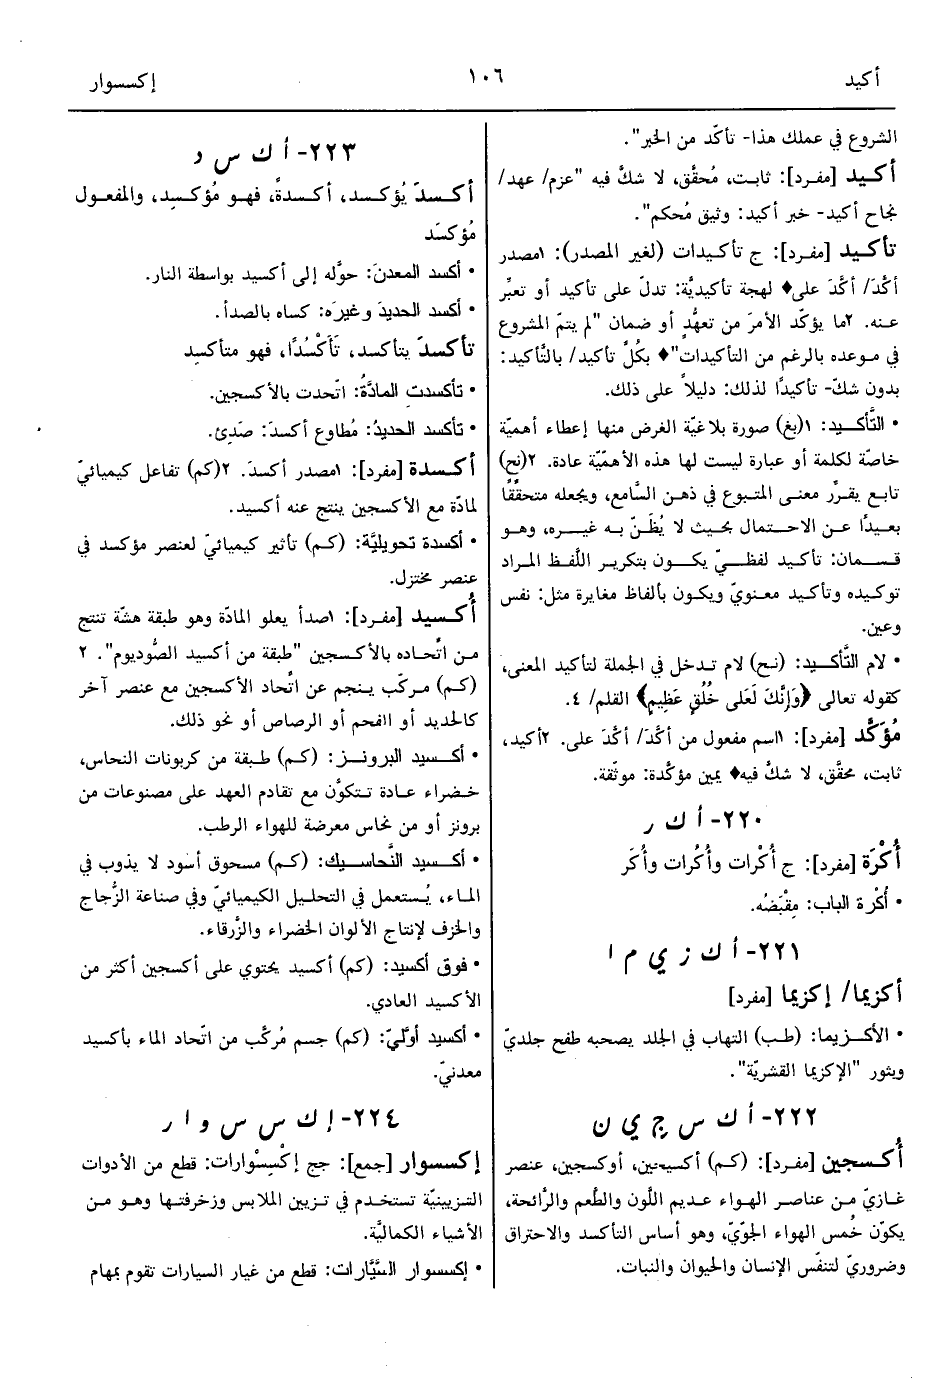 أكيد
١٠٦
إكسسوار
الشروع في عملك هذا- تأكّد من الخبر".
أكيد [مفرد]: ثابت، مُحقَّق، لا شكَّ فيه "عزم/ عهد/
نجاح أكيد- خبر أكيد: وثيق مُحكم".
تأكيد [مفرد]: ج تأكيدات (لغير المصدر): ١مصدر
أكَّدَ/ أكَّدَ على♦ لهجة تأكيديَّة: تدلّ على تأكيد أو تعبِّر
عنه. ٢ما يؤكّد الأمرَ من تعهُّدٍ أو ضمان "لم يتمّ المشروع
في موعده بالرغم من التأكيدات"♦ بكُلِّ تأكيد/ بالتَّأكيد:
بدون شكّ- تأكيدًا لذلك: دليلاً على ذلك.
• التَّأكيد: ١(بغ) صورة بلاغيّة الغرض منها إعطاء أهميّة
خاصّة لكلمة أو عبارة ليست لها هذه الأهمّيّة عادة. ٢(نح)
تابع يقرِّر معنى المتبوع في ذهن السَّامع، ويجعله متحقّقًا
بعيدًا عن الاحتمال بحيث لا يُظَنّ به غيره، وهو
قسمان: تأكيد لفظيّ يكون بتكرير اللَّفظ المراد
توكيده وتأكيد معنويّ ويكون بألفاظ مغايرة مثل: نفس
وعين.
• لام التَّأكيد: (نح) لام تدخل في الجملة لتأكيد المعنى،
كقوله تعالى ﴿وَإِنَّكَ لَعَلَى خُلُقٍ عَظِيمٍ﴾ القلم/ ٤.
مُؤكَّد [مفرد]: ١اسم مفعول من أكَّدَ/ أكَّدَ على. ٢أكيد،
ثابت، محقَّق، لا شكَّ فيه♦ يمين مؤكَّدة: موثّقة.
٢٢٠- أ ك ر
أُكْرَة [مفرد]: ج أُكْرات وأُكُرات وأُكَر
• أُكْرة الباب: مِقْبَضُه.
٢٢١- أ ك ز ي م ا
أكزيما/ إكزيما [مفرد]
• الأكزيما: (طب) التهاب في الجلد يصحبه طفح جلديّ
وبثور "الإكزيما القشريّة".
٢٢٢- أ ك س ج ي ن
أُكسجين [مفرد]: (كم) أكسيجين، أوكسجين، عنصر
غازيّ من عناصر الهواء عديم اللَّون والطَّعم والرَّائحة،
يكوّن خُمس الهواء الجوّيّ، وهو أساس التأكسد والاحتراق
وضروريّ لتنفّس الإنسان والحيوان والنبات.
٢٢٣- أ ك س د
أكسدَ يُؤكسد، أكسدةً، فهو مُؤكسِد، والمفعول
مُؤكسَد
• أكسد المعدنَ: حوَّله إلى أكسيد بواسطة النار.
• أكسد الحديدَ وغيرَه: كساه بالصدأ.
تأكسدَ يتأكسد، تَأَكْسُدًا، فهو متأكسِد
• تأكسدت المادَّةُ: اتّحدت بالأكسجين.
• تأكسد الحديدُ: مُطاوع أكسدَ: صَدِئَ.
أكسدة [مفرد]: ١مصدر أكسدَ. ٢(كم) تفاعل كيميائيّ
لمادّة مع الأكسجين ينتج عنه أكسيد.
• أكسدة تحويليَّة: (كم) تأثير كيميائيّ لعنصر مؤكسد في
عنصر مختزل.
أُكسيد [مفرد]: ١صدأ يعلو المادّة وهو طبقة هشّة تنتج
من اتّحاده بالأكسجين "طبقة من أكسيد الصُّوديوم". ٢
(كم) مركّب ينجم عن اتّحاد الأكسجين مع عنصر آخر
كالحديد أو الفحم أو الرصاص أو نحو ذلك.
• أكسيد البرونز: (كم) طبقة من كربونات النحاس،
خضراء عادة تتكوَّن مع تقادم العهد على مصنوعات من
برونز أو من نحاس معرضة للهواء الرطب.
• أكسيد النَّحاسيك: (كم) مسحوق أسود لا يذوب في
الماء، يُستعمل في التحليل الكيميائيّ وفي صناعة الزُّجاج
والخزف لإنتاج الألوان الخضراء والزَّرقاء.
• فوق أكسيد: (كم) أكسيد يحتوي على أكسجين أكثر من
الأكسيد العادي.
• أكسيد أوَّليّ: (كم) جسم مُركَّب من اتّحاد الماء بأكسيد
معدنيّ.
٢٢٤- إ ك س س و ا ر
إكسسوار [جمع]: جج إكْسِسْوارات: قطع من الأدوات
التزيينيّة تستخدم في تزيين الملابس وزخرفتها وهو من
الأشياء الكماليَّة.
• إكسسوار السَّيَّارات: قطع من غيار السيارات تقوم بمهام